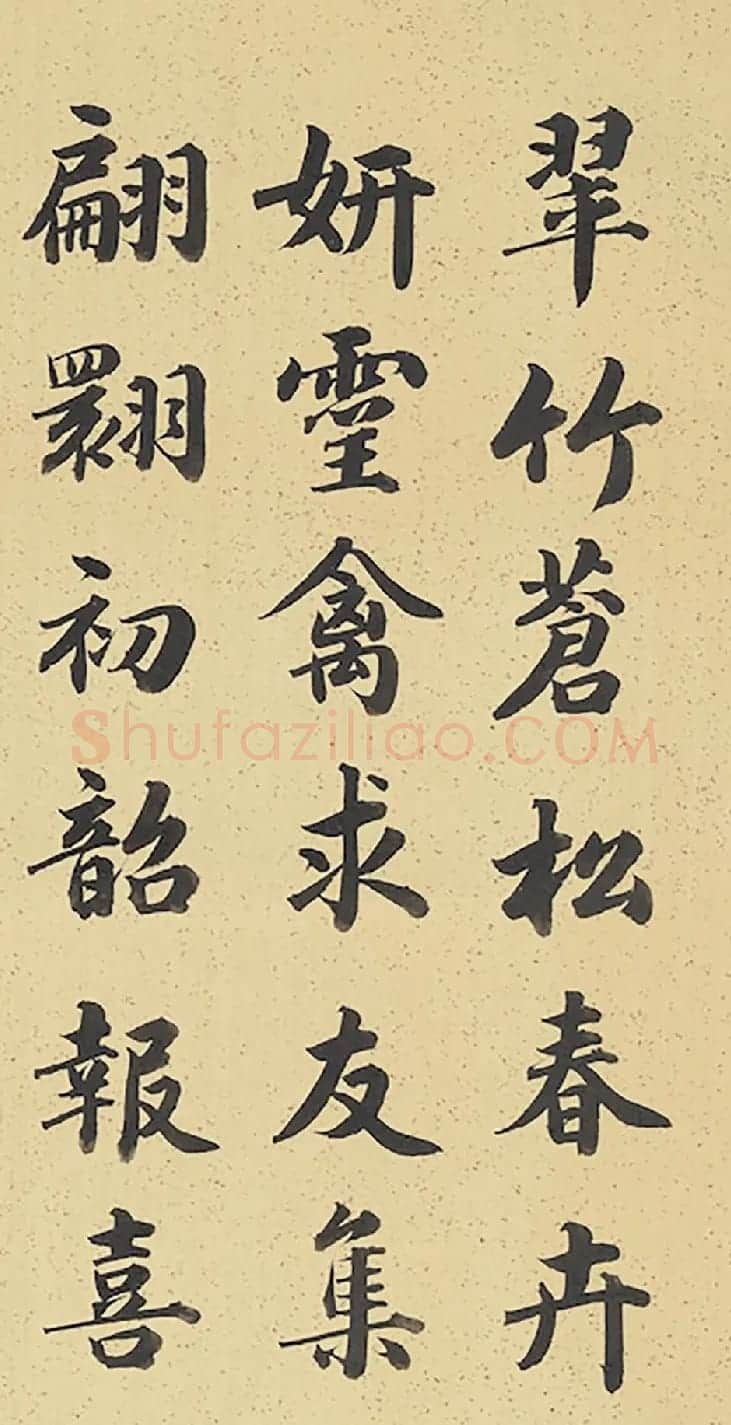 翠竹蒼松春卉
妍靈禽求友集
翩翾初韶報喜
Shufaziliao.COM